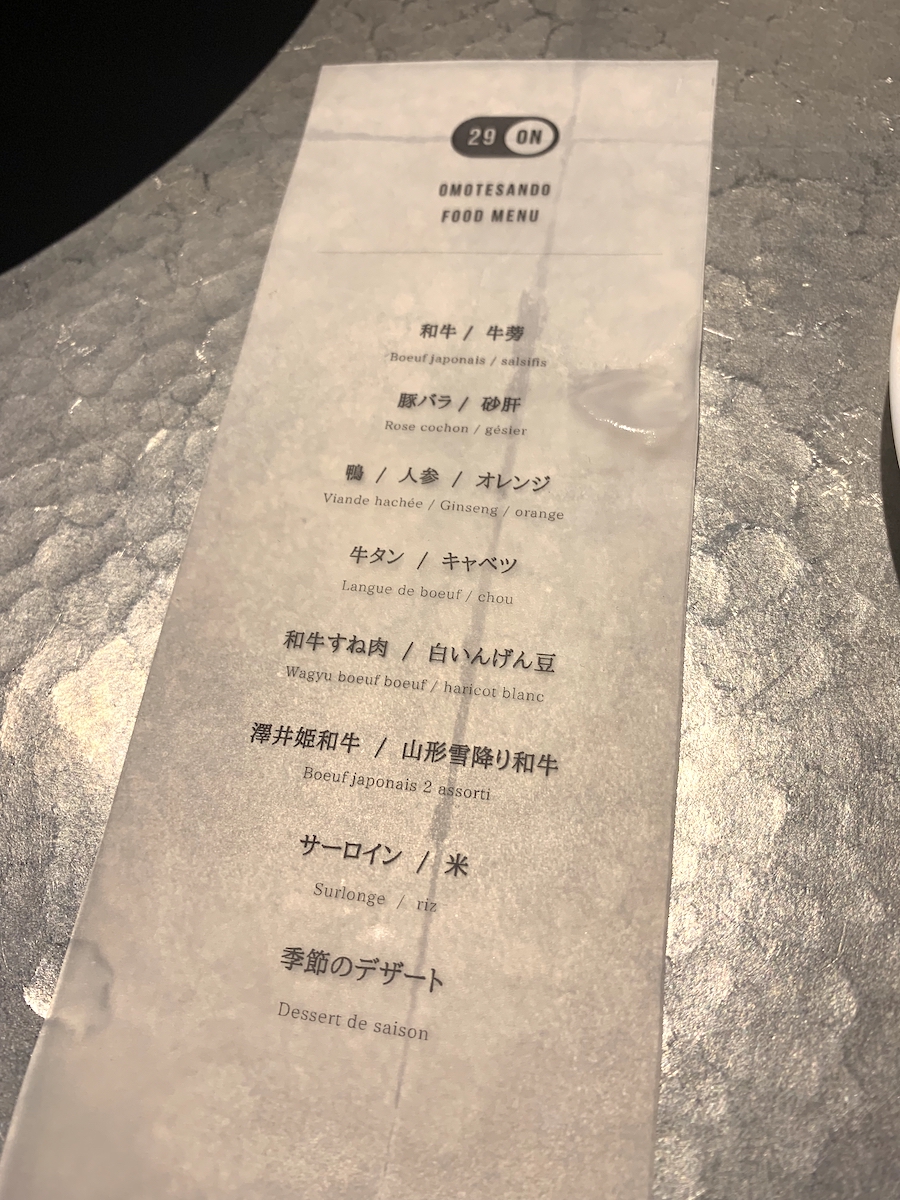 29 ON
OMOTESANDO
FOOD MENU
和牛 / 牛蒡
Boeuf japonais / salsifis
豚バラ / 砂肝
Rose cochon / gésier
鴨 / 人参 / オレンジ
Viande hachée / Ginseng / orange
牛タン / キャベツ
Langue de boeuf / chou
和牛すね肉 / 白いんげん豆
Wagyu boeuf boeuf / haricot blanc
澤井姫和牛 / 山形雪降り和牛
Boeuf japonais 2 assorti
サーロイン / 米
Surlonge / riz
季節のデザート
Dessert de saison